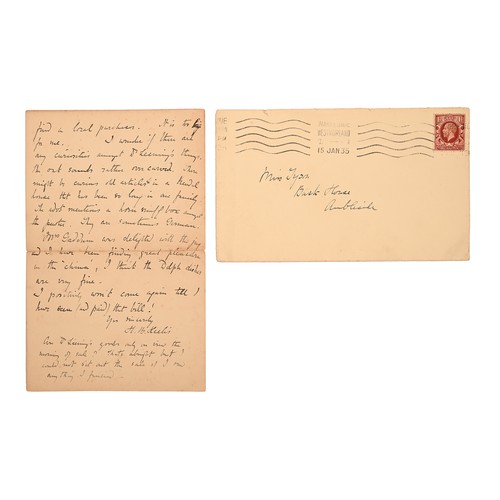 find a local purchaser. It is too big
for me. I wonder if there are
any curiosities amongst Dr Leeming's things.
The oak sounds rather overcarved. There
might be curious old articles in a Kendal
house that has been so long in one family.
The advt mentions a horn snuff box amongst
the pewter. They are sometimes German.
Mrs Gaddum was delighted with the jug
and I have been finding great pleasure
in the "china"; I think the Delph dishes
are very fine.
I positively won't come again till I
have seen (and paid) that bill!
Yrs sincerely
H. B. Heelis
Are Dr Leeming's goods only on view the
morning of sale? That's alright but I
would not sit out the sale if I saw
anything I fancied.
WESTMORLAND
15 JAN 35
Miss Tyson
Bush House
Ambleside